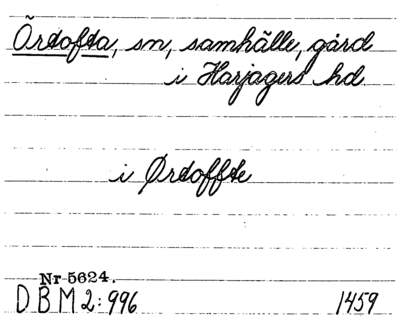 Örtofta, sn, samhälle, gård
i Harjagers hd.
i Ørtoffte
Nr 5624.
DBM 2:996 1459